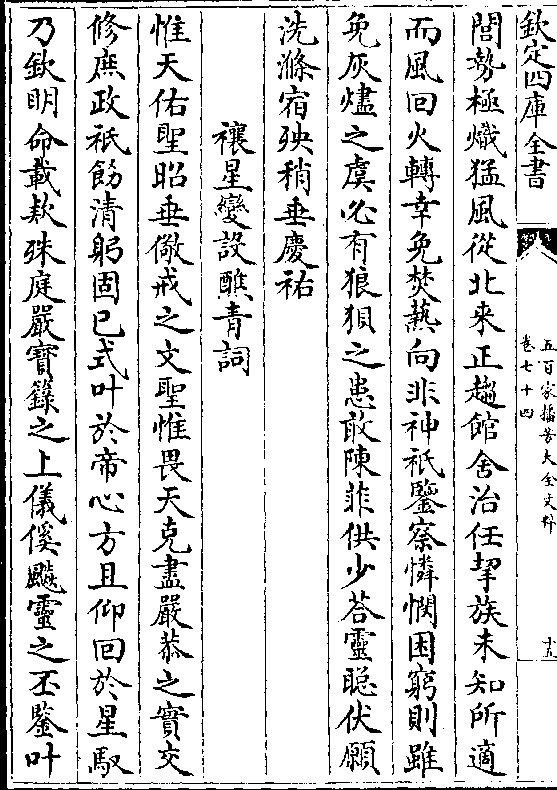 欽定四庫全書
五百家播芳大全文粹
卷七十四
十五
閭勢極熾猛風從北來正趨館舍治任挈族未知所適
而風回火轉幸免焚爇向非神祇鑒察憐憫困窮則雖
免灰燼之虞必有狼狽之患敢陳菲供少荅靈聰伏願
洗滌宿殃稍垂慶祐
禳星變設醮青詞
惟天佑聖昭垂儆戒之文聖惟畏天克盡嚴恭之實交
修庶政祇飭清躬固已式叶於帝心方且仰回於星馭
乃欽明命載款殊庭嚴寶籙之上儀傒飈靈之丕鑒叶